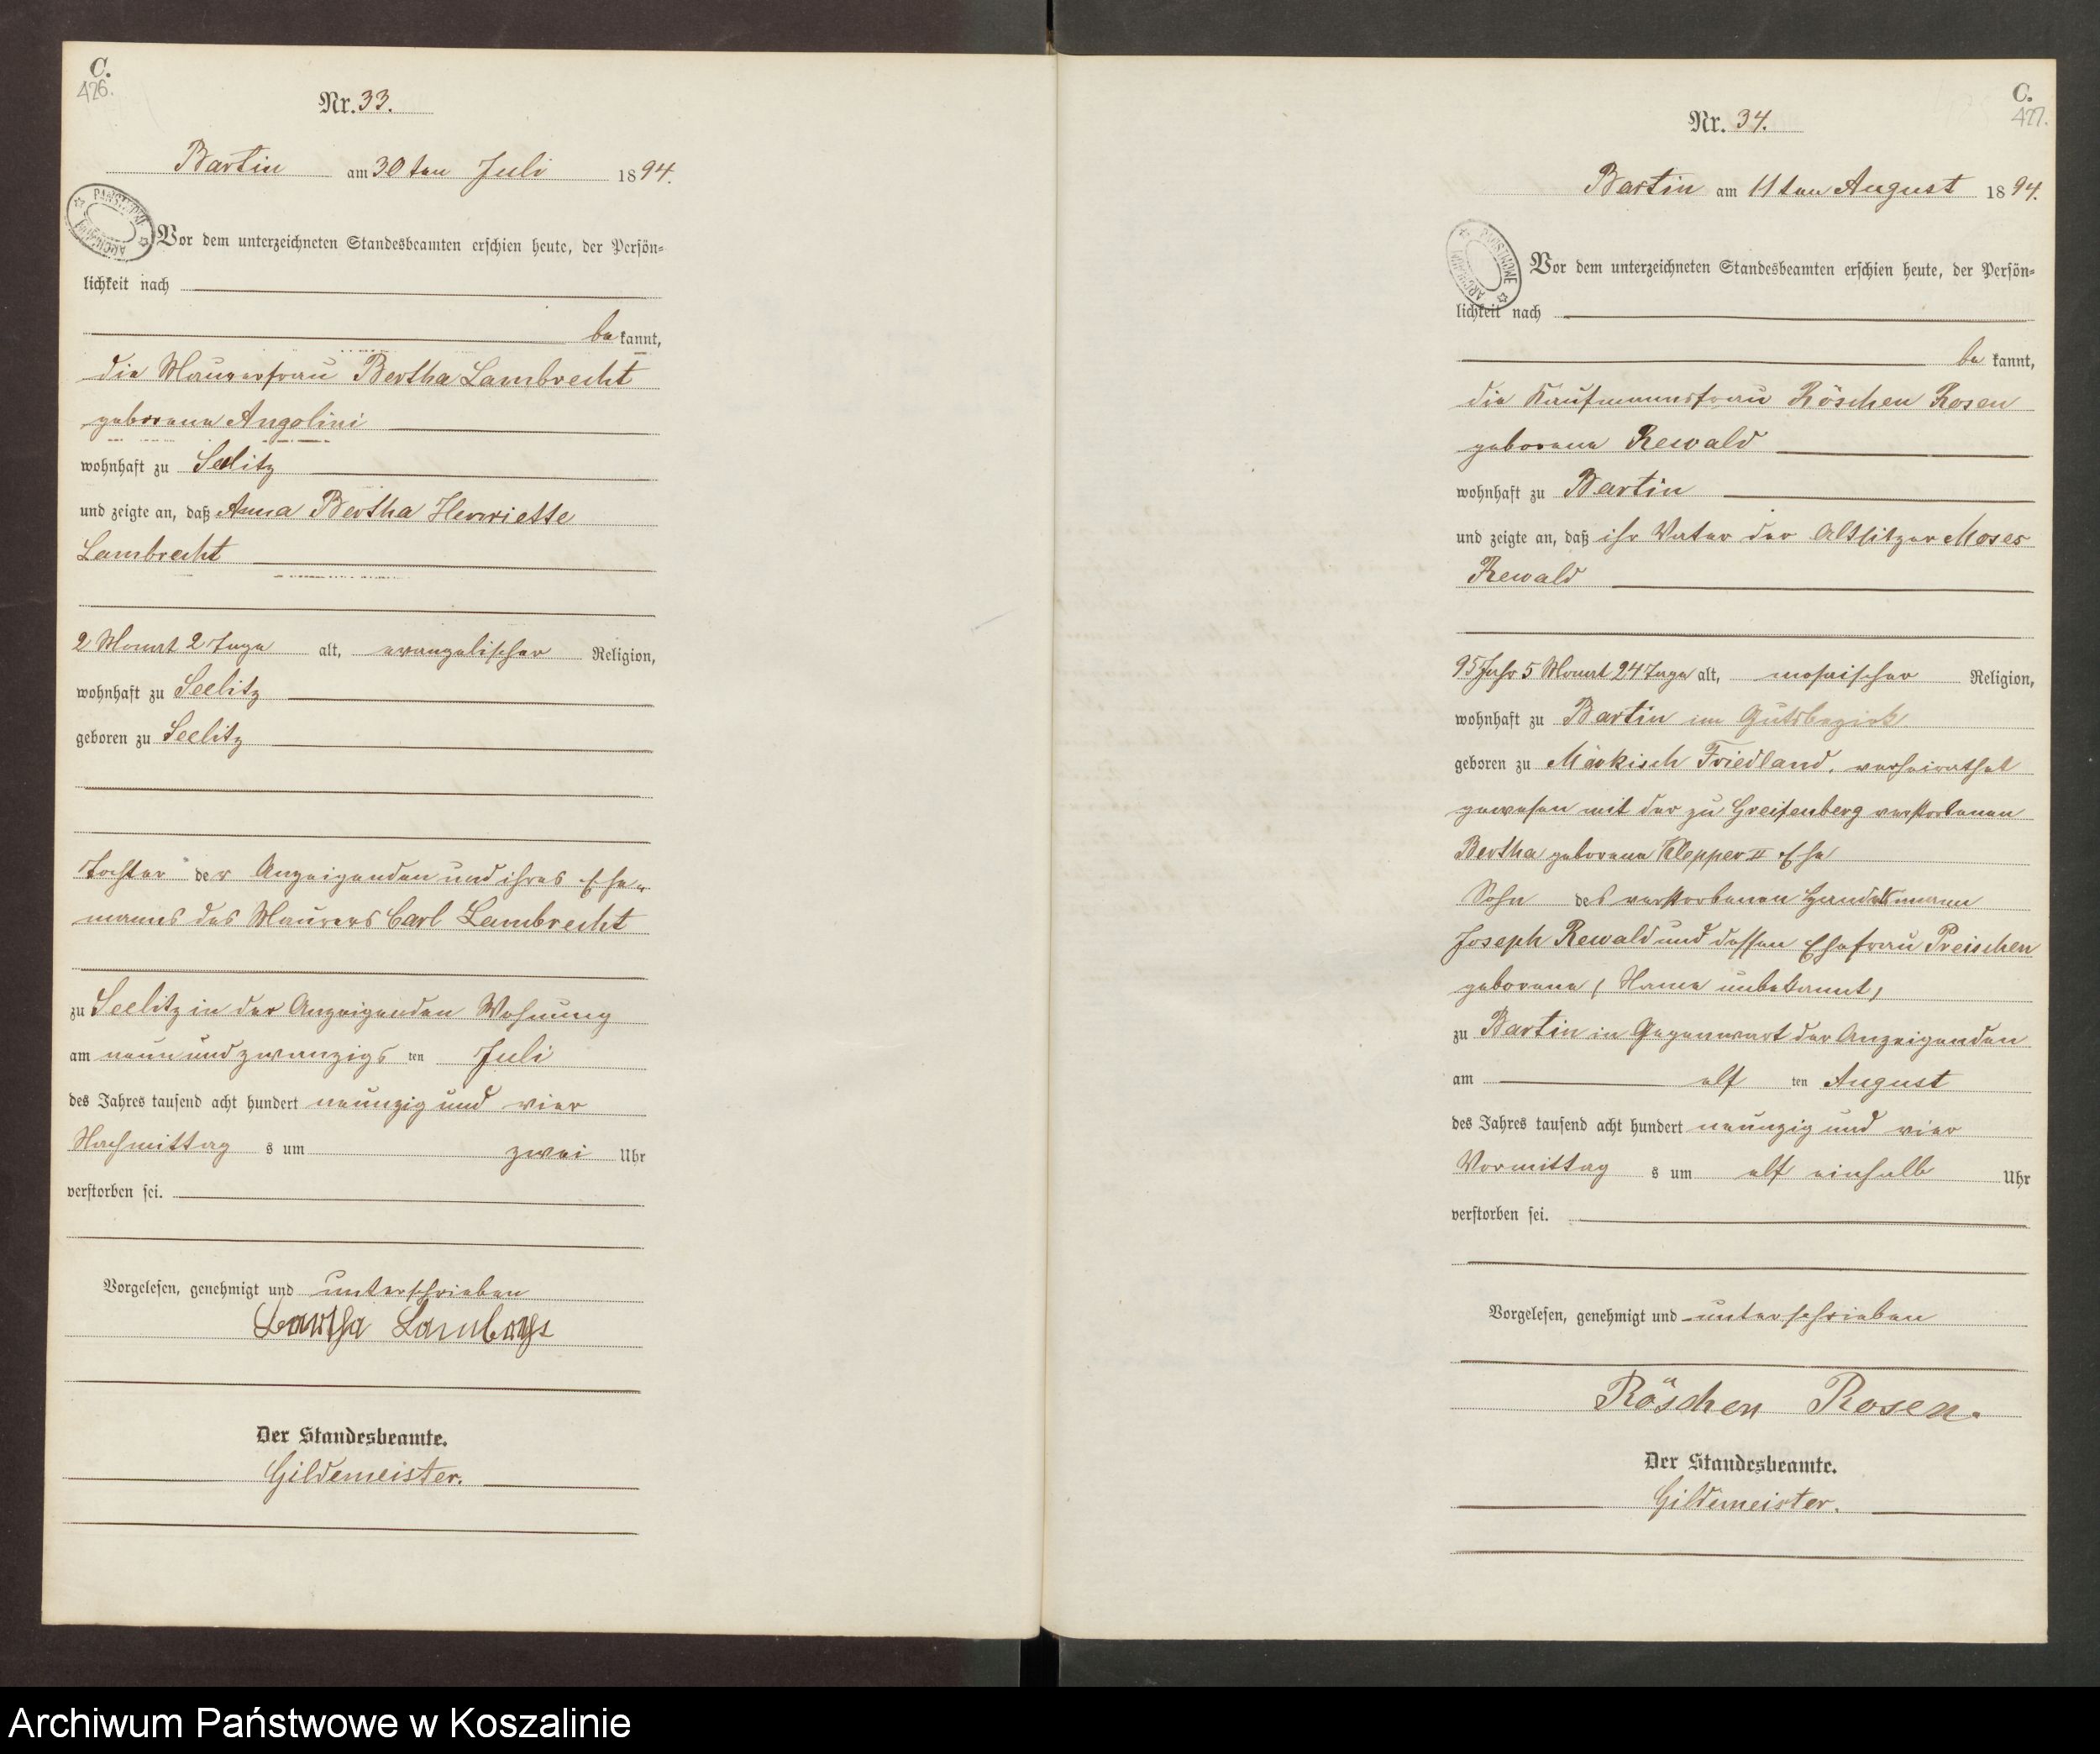 C.
426.
Nr. 33.
Bartin am 30ten Juli 1894.
Vor dem unterzeichneten Standesbeamten erschien heute, der Persön-
lichkeit nach
be kannt,
die Maurerfrau Bertha Lambrecht
geborene Angolini
wohnhaft zu Seelitz
und zeigte an, daß Anna Bertha Henriette
Lambrecht
2 Monat 2 Tage alt, evangelischer Religion,
wohnhaft zu Seelitz
geboren zu Seelitz
Tochter der Anzeigenden und ihres Ehe-
manns des Maurers Carl Lambrecht
zu Seelitz in der Anzeigenden Wohnung
am neunundzwanzigs ten Juli
des Jahres tausend acht hundert neunzig und vier
Nachmittag s um zwei Uhr
verstorben sei.
Vorgelesen, genehmigt und unterschrieben
Der Standesbeamte.
Gildemeister.
C.
427.
Nr. 34.
Bartin am 11ten August 1894.
PAŃSTWOWE ARCHIWUM
Vor dem unterzeichneten Standesbeamten erschien heute, der Persön-
lichkeit nach
be kannt,
die Kaufmannsfrau Röschen Rosen
geborene Rewald
wohnhaft zu Bartin
und zeigte an, daß ihr Vater der Altsitzer Moses
Rewald
95 Jahr 5 Monat 24 Tage alt, mosaischer Religion,
wohnhaft zu Bartin im Gutsbezirk
geboren zu Märkisch Friedland, verheirathet
gewesen mit der zu Greifenberg verstorbenen
Bertha geborene Klepper II Ehe
Sohn des verstorbenen Handelsmann
Joseph Rewald und dessen Ehefrau Preischen
geborene (Name unbekannt)
zu Bartin in Gegenwart der Anzeigenden
am elf ten August
des Jahres tausend acht hundert neunzig und vier
Vormittag s um elf einhalb Uhr
verstorben sei.
Vorgelesen, genehmigt und unterschrieben
Röschen Rosen.
Der Standesbeamte.
Gildemeister.
Archiwum Państwowe w Koszalinie